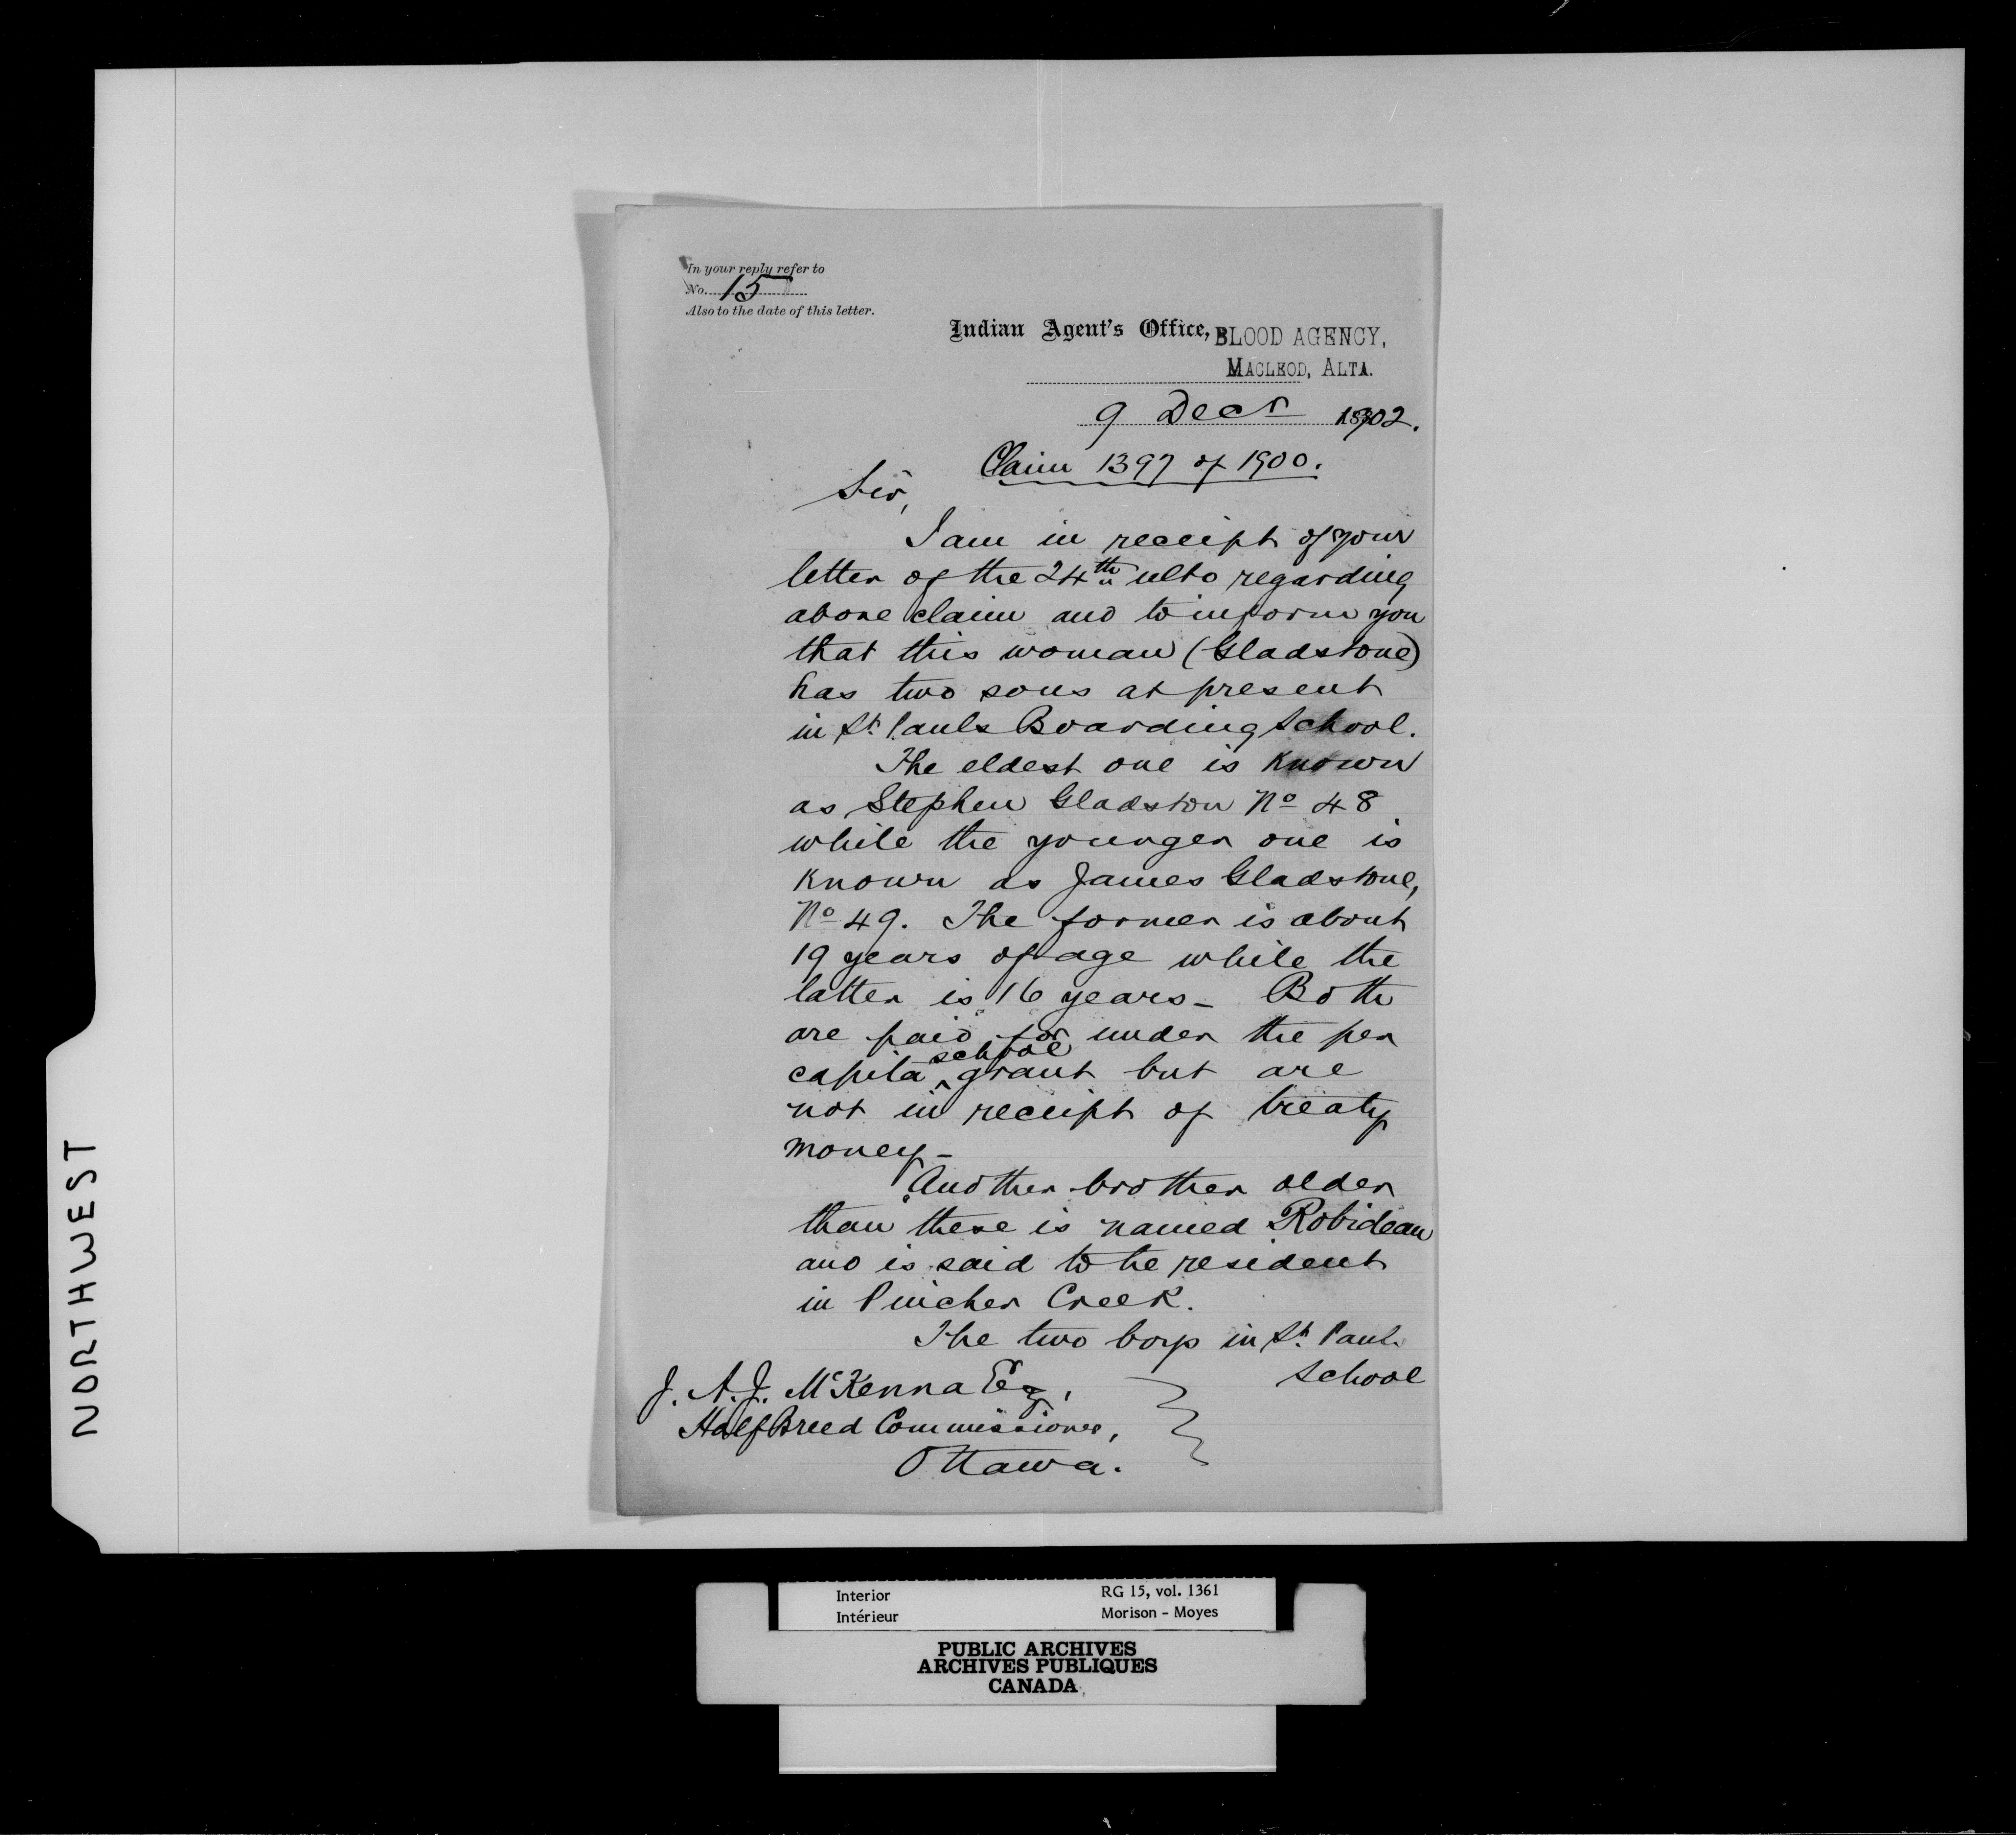 In your reply refer to
No. 15
Also to the date of this letter.
Indian Agent's Office, BLOOD AGENCY,
MACLEOD, ALTA.
9 Decr 1902.
Claim 1397 of 1900.
Sir,
I am in receipt of your
letter of the 24th ulto regarding
above claim and to inform you
that this woman (Gladstone)
has two sons at present
in St. Pauls Boarding School.
The eldest one is known
as Stephen Gladston No 48
while the younger one is
known as James Gladstone,
No 49. The former is about
19 years of age while the
latter is 16 years - Both
are paid for under the per
capita school grant but are
not in receipt of treaty
money -
Another brother older
than these is named Robideau
and is said to be resident
in Pincher Creek.
The two boys in St. Pauls
School
J. A. J. McKenna Esq,
Halfbreed Commissioner,
Ottawa.
NORTHWEST
Interior RG 15, vol. 1361
Intérieur Morison - Moyes
PUBLIC ARCHIVES
ARCHIVES PUBLIQUES
CANADA